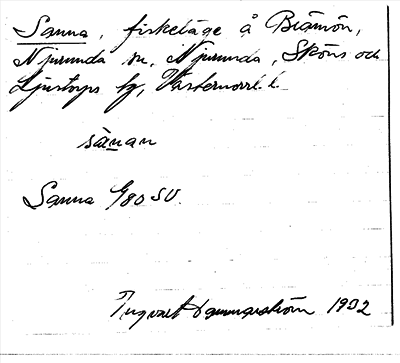 Sanna, fiskeläge å Brämön,
Njurunda sn, Njurunda, Sköns och
Ljustorps tg, Västernorrl. l.
sànan
Sanna G80 SV.
Hammarström 1932